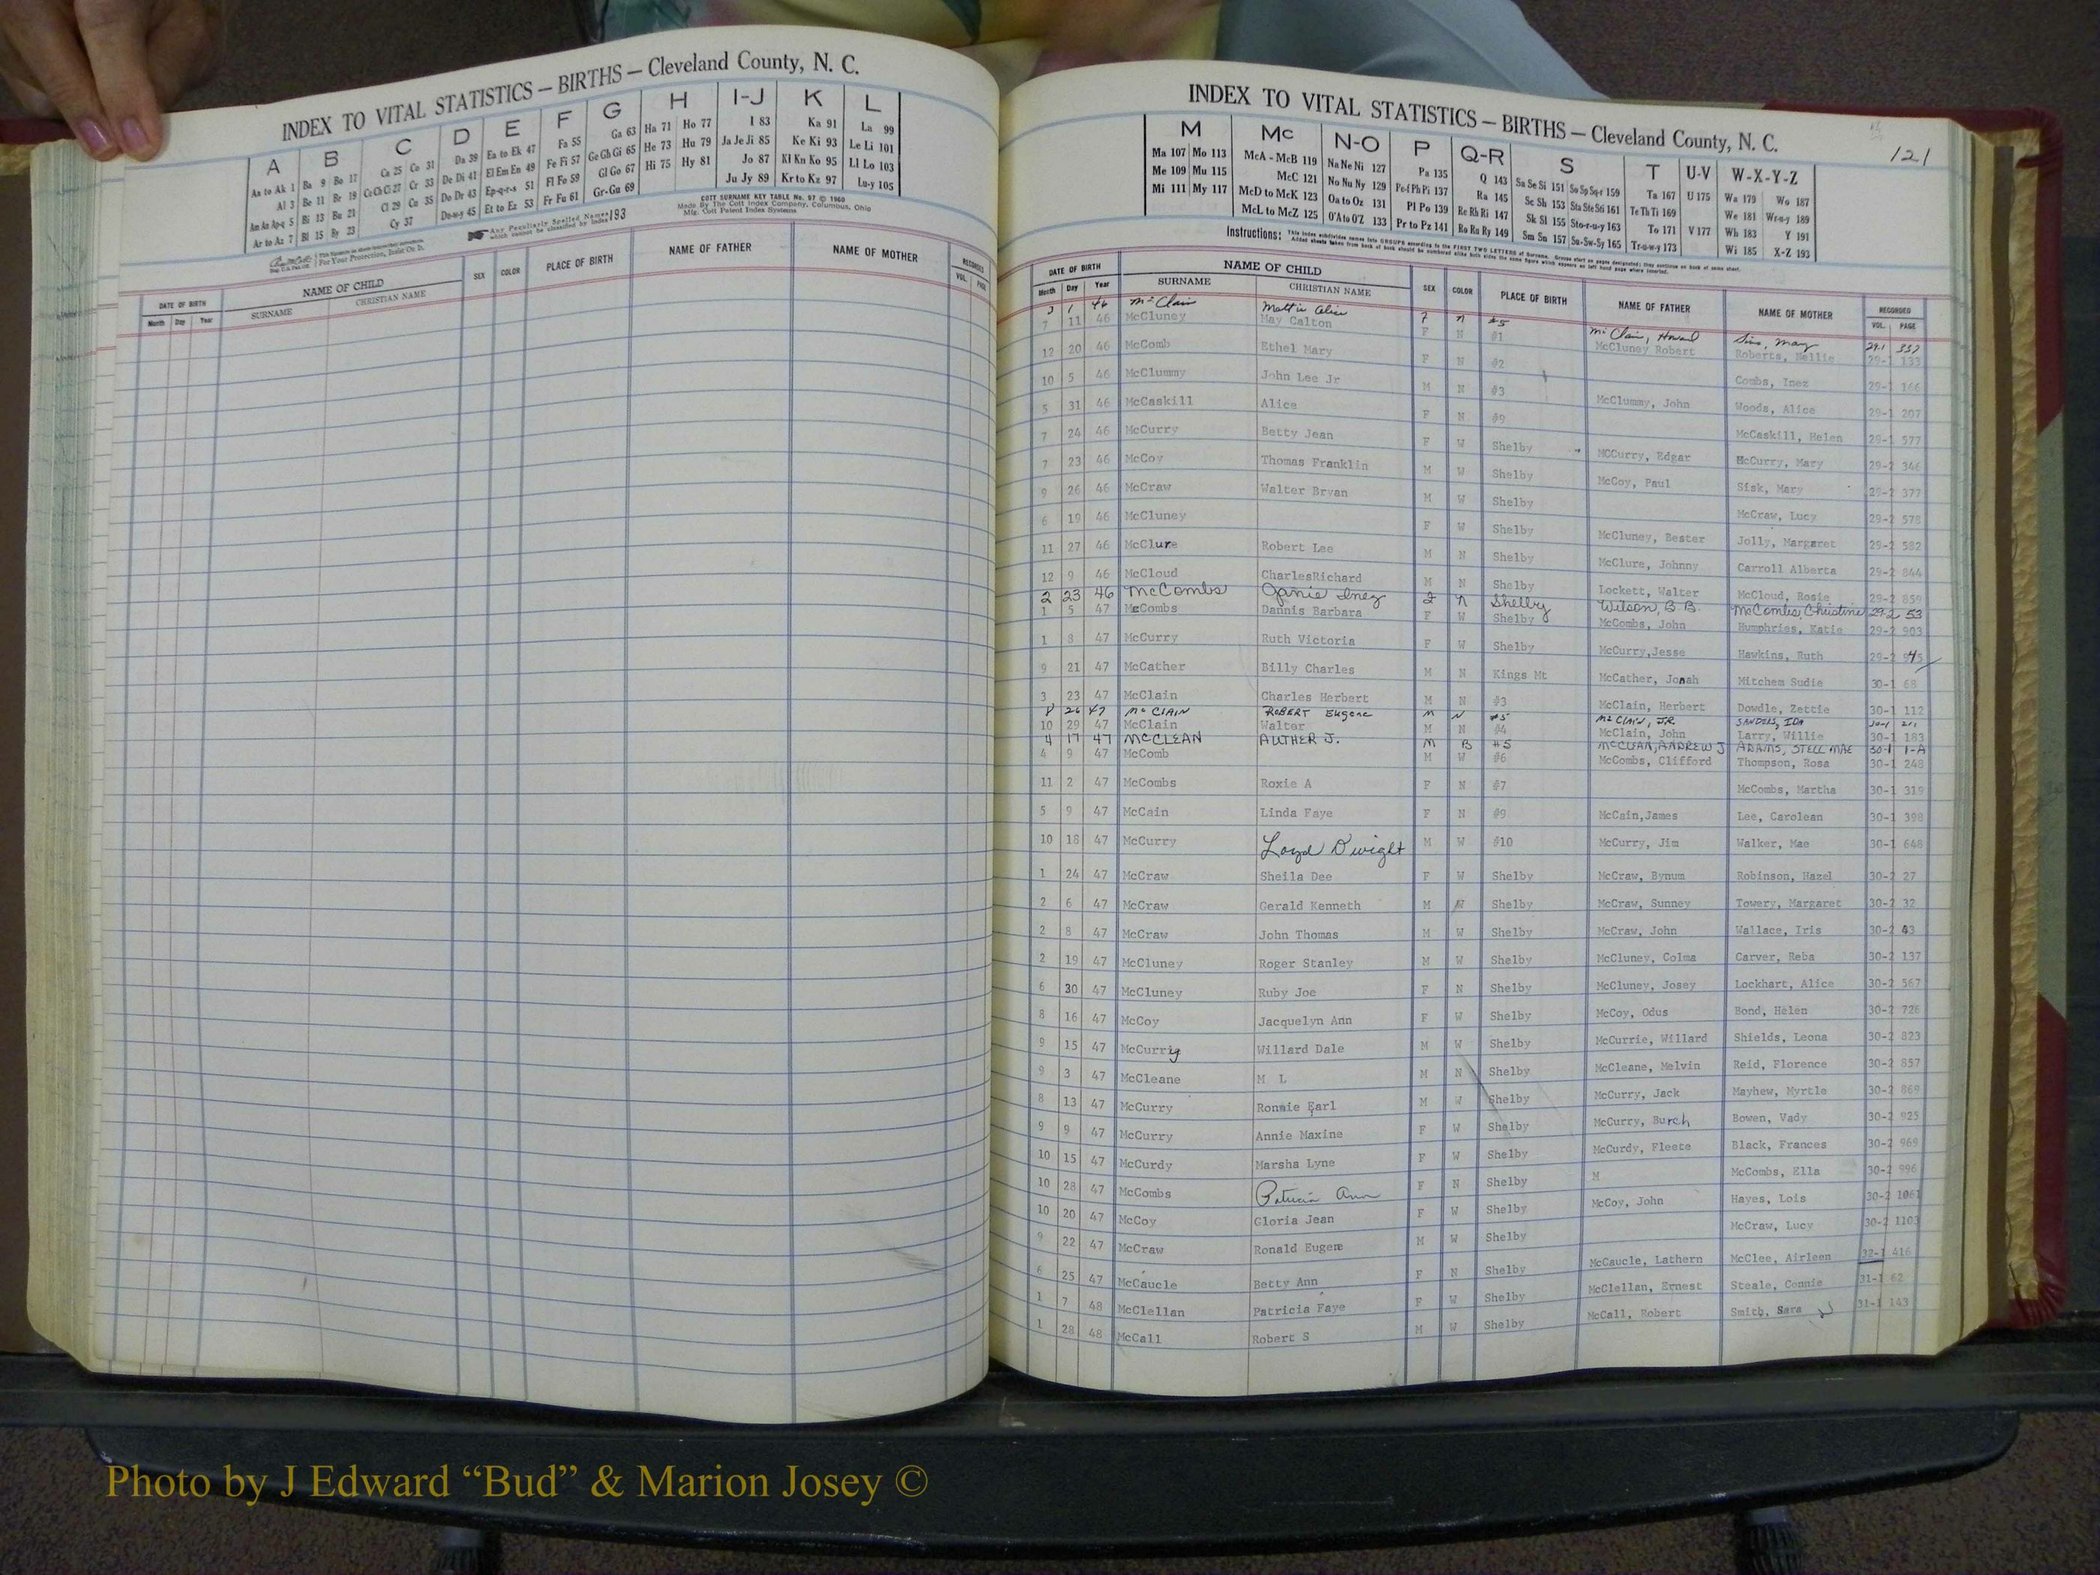 INDEX TO VITAL STATISTICS — BIRTHS — Cleveland County, N. C.
A B C D E F G H I-J K L
Aa to Ak 1 Ba 9 Bo 17 Ca 25 Co 31 Da 39 Ea to Ek 47 Fa 55 Ga 63 Ha 71 Ho 77 I 83 Ka 91 La 99
Al 3 Be 11 Br 19 Ce Ch Ci 27 Cr 33 De Di 41 El Em En 49 Fe Fi 57 Ge Gh Gi 65 He 73 Hu 79 Ja Je Ji 85 Ke Ki 93 Le Li 101
Am An Ap-q 5 Bi 13 Bu 21 Cl 29 Cu 35 Do Dr 43 Ep-q-r-s 51 Fl Fo 59 Gl Go 67 Hi 75 Hy 81 Jo 87 Kl Kn Ko 95 Ll Lo 103
Ar to Az 7 Bl 15 By 23 Cy 37 Du-w-y 45 Et to Ez 53 Fr Fu 61 Gr-Gu 69 Ju Jy 89 Kr to Kz 97 Lu-y 105
COTT SURNAME KEY TABLE No. 97 © 1960
Made By The Cott Index Company, Columbus, Ohio
Mfg. Cott Patent Index Systems
Any Peculiarly Spelled Names which cannot be classified by index 193
For Your Protection, Insist On It.
DATE OF BIRTH NAME OF CHILD SEX COLOR PLACE OF BIRTH NAME OF FATHER NAME OF MOTHER RECORDED
Month Day Year SURNAME CHRISTIAN NAME VOL. PAGE
INDEX TO VITAL STATISTICS — BIRTHS — Cleveland County, N. C.
121
M Mc N-O P Q-R S T U-V W-X-Y-Z
Ma 107 Mo 113 McA - McB 119 Na Ne Ni 127 Pa 135 Q 143 Sa Se Si 151 So Sp Sq-r 159 Ta 167 U 175 Wa 179 Wo 187
Me 109 Mu 115 McC 121 No Nu Ny 129 Pe-f Ph Pi 137 Ra 145 Sc Sh 153 Sta Ste Sti 161 Te Th Ti 169 We 181 Wr-u-y 189
Mi 111 My 117 McD to McK 123 Oa to Oz 131 Pl Po 139 Re Rh Ri 147 Sk Sl 155 Sto-r-u-y 163 To 171 V 177 Wh 183 Y 191
McL to McZ 125 O'A to O'Z 133 Pr to Pz 141 Ro Ru Ry 149 Sm Sn 157 Su-Sw-Sy 165 Tr-u-w-y 173 Wi 185 X-Z 193
Instructions: This index subdivides names into GROUPS according to the FIRST TWO LETTERS of Surname. Groups start on pages designated; they continue on back of same sheet.
Added sheets taken from back of book should be numbered alike both sides the same figure which appears on left hand page where inserted.
DATE OF BIRTH NAME OF CHILD SEX COLOR PLACE OF BIRTH NAME OF FATHER NAME OF MOTHER RECORDED
Month Day Year SURNAME CHRISTIAN NAME VOL. PAGE
3 1 46 McClain Mattie Alice F N #5 McClain, Howard Sims, May 29-1 337
7 11 46 McCluney May Calton F N #1 McCluney Robert Roberts, Nellie 29-1 133
12 20 46 McComb Ethel Mary F N #2 Combs, Inez 29-1 166
10 5 46 McClummy John Lee Jr M N #3 McClummy, John Woods, Alice 29-1 207
5 31 46 McCaskill Alice F N #9 McCaskill, Helen 29-1 577
7 24 46 McCurry Betty Jean F W Shelby MCCurry, Edgar McCurry, Mary 29-2 346
7 23 46 McCoy Thomas Franklin M W Shelby McCoy, Paul Sisk, Mary 29-2 377
9 26 46 McCraw Walter Bryan M W Shelby McCraw, Lucy 29-2 578
6 19 46 McCluney F W Shelby McCluney, Bester Jolly, Margaret 29-2 582
11 27 46 McClure Robert Lee M N Shelby McClure, Johnny Carroll Alberta 29-2 844
12 9 46 McCloud CharlesRichard M N Shelby Lockett, Walter McCloud, Rosie 29-2 859
2 23 46 McCombs Inez F N Shelby Wilson, B B. McCombs, Christine 29-2 53
1 5 47 McCombs Dannis Barbara F W Shelby McCombs, John Humphries, Katie 29-2 903
1 8 47 McCurry Ruth Victoria F W Shelby McCurry,Jesse Hawkins, Ruth 29-2 945
9 21 47 McCather Billy Charles M N Kings Mt McCather, Jonah Mitchem Sudie 30-1 68
3 23 47 McClain Charles Herbert M N #3 McClain, Herbert Dowdle, Zettie 30-1 112
8 26 47 McCLAIN ROBERT Eugene M N #5 McCLAIN, JR. SANDERS, IDA 30-1 211
10 29 47 McClain Walter M N #4 McClain, John Larry, Willie 30-1 183
4 17 47 McCLEAN AUTHER J. M B #5 McCLEAN, ANDREW J ADAMS, STELL MAE 30-1 1-A
4 9 47 McComb M W #6 McCombs, Clifford Thompson, Rosa 30-1 248
11 2 47 McCombs Roxie A F N #7 McCombs, Martha 30-1 319
5 9 47 McCain Linda Faye F N #9 McCain,James Lee, Carolean 30-1 398
10 18 47 McCurry Loyd Dwight M W #10 McCurry, Jim Walker, Mae 30-1 648
1 24 47 McCraw Sheila Dee F W Shelby McCraw, Bynum Robinson, Hazel 30-2 27
2 6 47 McCraw Gerald Kenneth M W Shelby McCraw, Sunney Towery, Margaret 30-2 32
2 8 47 McCraw John Thomas M W Shelby McCraw, John Wallace, Iris 30-2 43
2 19 47 McCluney Roger Stanley M W Shelby McCluney, Colma Carver, Reba 30-2 137
6 30 47 McCluney Ruby Joe F N Shelby McCluney, Josey Lockhart, Alice 30-2 567
8 16 47 McCoy Jacquelyn Ann F W Shelby McCoy, Odus Bond, Helen 30-2 726
9 15 47 McCurry Willard Dale M W Shelby McCurrie, Willard Shields, Leona 30-2 823
9 3 47 McCleane M L M N Shelby McCleane, Melvin Reid, Florence 30-2 857
8 13 47 McCurry Ronnie Earl M W Shelby McCurry, Jack Mayhew, Myrtle 30-2 869
9 9 47 McCurry Annie Maxine F W Shelby McCurry, Burch Bowen, Vady 30-2 925
10 15 47 McCurdy Marsha Lyne F W Shelby McCurdy, Fleete Black, Frances 30-2 969
10 28 47 McCombs Patricia Ann F N Shelby M McCombs, Ella 30-2 996
10 20 47 McCoy Gloria Jean F W Shelby McCoy, John Hayes, Lois 30-2 1061
9 22 47 McCraw Ronald Eugene M W Shelby McCraw, Lucy 30-2 1103
6 25 47 McCaucle Betty Ann F N Shelby McCaucle, Lathern McClee, Airleen 32-1 416
1 7 48 McClellan Patricia Faye F W Shelby McClellan, Ernest Steale, Connie 31-1 62
1 28 48 McCall Robert S M W Shelby McCall, Robert Smith, Sara 31-1 143
Photo by J Edward “Bud” & Marion Josey ©